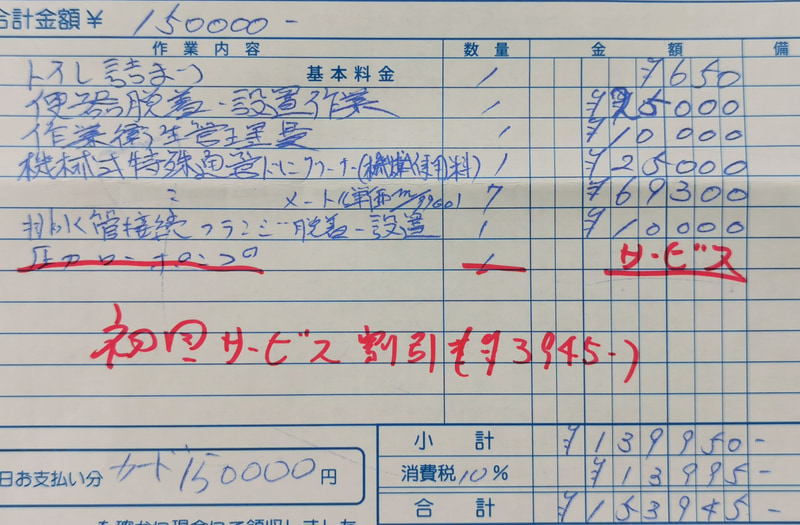 合計金額¥ 150000-
作業内容 数量 金額 備
トイレ詰まつ 基本料金 1 ¥650
便器脱着・設置作業 1 ¥25000
作業衛生管理費 1 ¥10000
機械式特殊通管ドレンクリーナー(機械使用料) 1 ¥25000
〃 メートル単価 m/9900) 7 ¥69300
排水管接続フランジ脱着・設置 1 ¥10000
圧力ローポンプ 1 サービス
初回サービス割引(¥3945-)
小計 ¥139950-
消費税10% ¥13995-
日お支払い分 カード150000円
合計 ¥153945-
を確かに現金にて領収しました